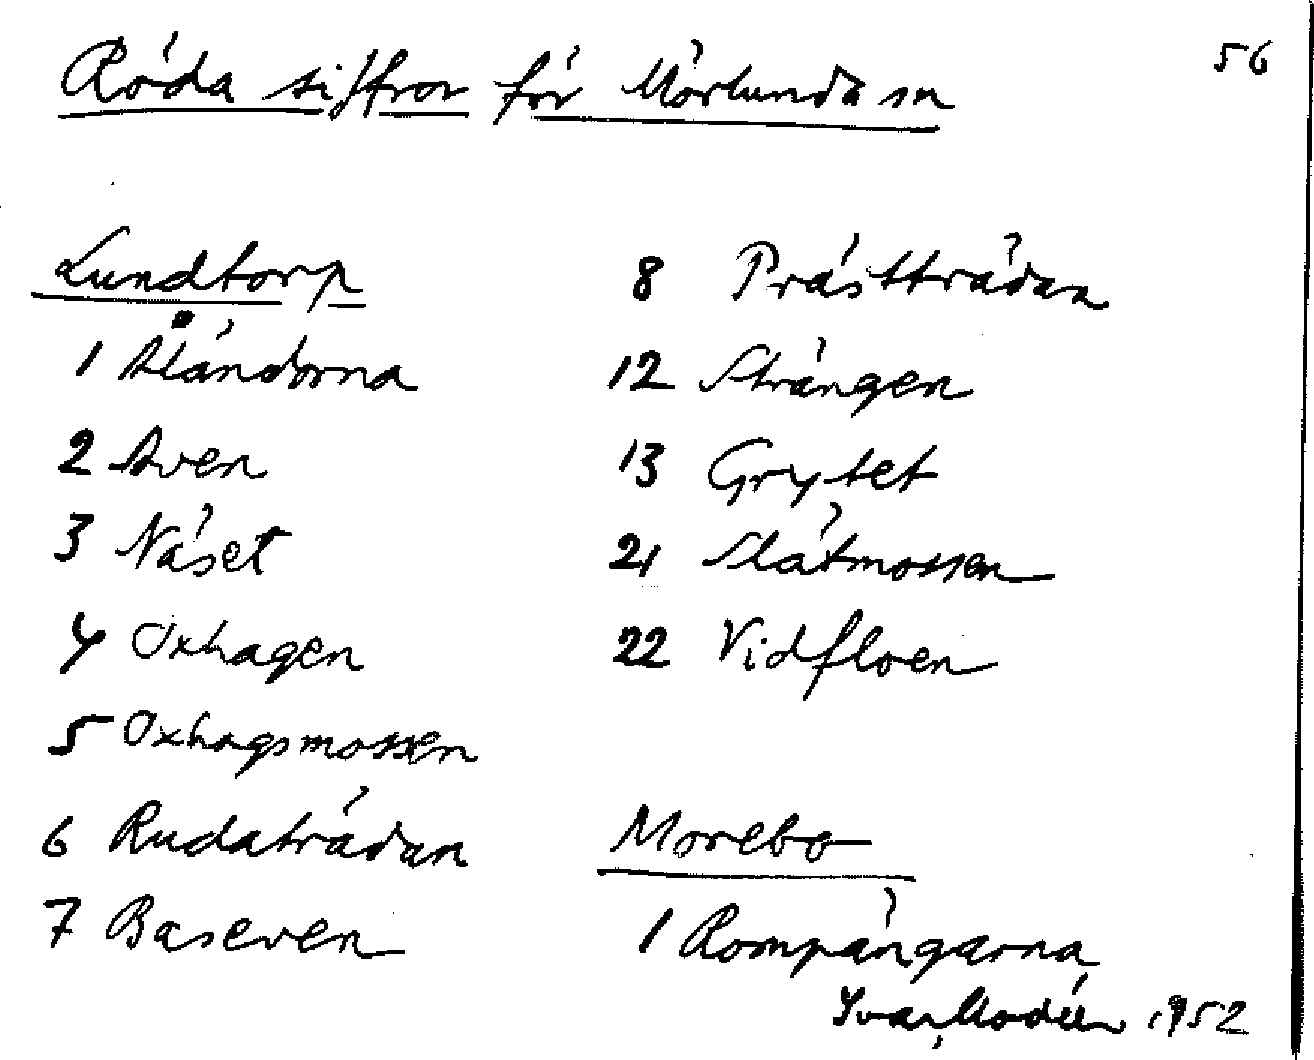 56
Röda siffror för Mörlunda sn
Lundtorp
1 Åländorna
2 Aven
3 Näset
4 Oxhagen
5 Oxhagsmossen
6 Rudaträdan
7 Baseven
8 Prästträdan
12 Strängen
13 Grytet
21 Slåtmossen
22 Vidfloen
Morebo
1 Rompängarna
Ivar Modéer 1952